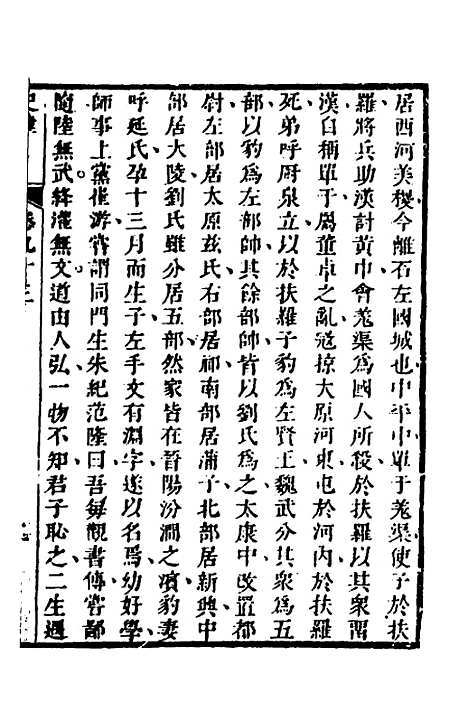 居西河美稷今離石左國城也中平中單于羗渠使子於扶
羅將兵助漢討黃巾會羗渠爲國人所殺於扶羅以其衆畱
漢自稱單于屬董卓之亂寇掠太原河東屯於河內於扶羅
死弟呼厨泉立以於扶羅子豹爲左賢王魏武分其衆爲五
部以豹爲左部帥其餘部帥皆以劉氏爲之太康中改置都
尉左部居太原兹氏右部居祁南部居蒲子北部居新興中
部居大陵劉氏雖分居五部然家皆在晉陽汾澗之濱豹妻
呼延氏孕十三月而生子左手文有淵字遂以名焉幼好學
師事上黨崔游嘗謂同門生朱紀范隆曰吾每觀書傳嘗鄙
隨陸無武絳灌無文道由人弘一物不知君子恥之二生遇
史 卷九十三